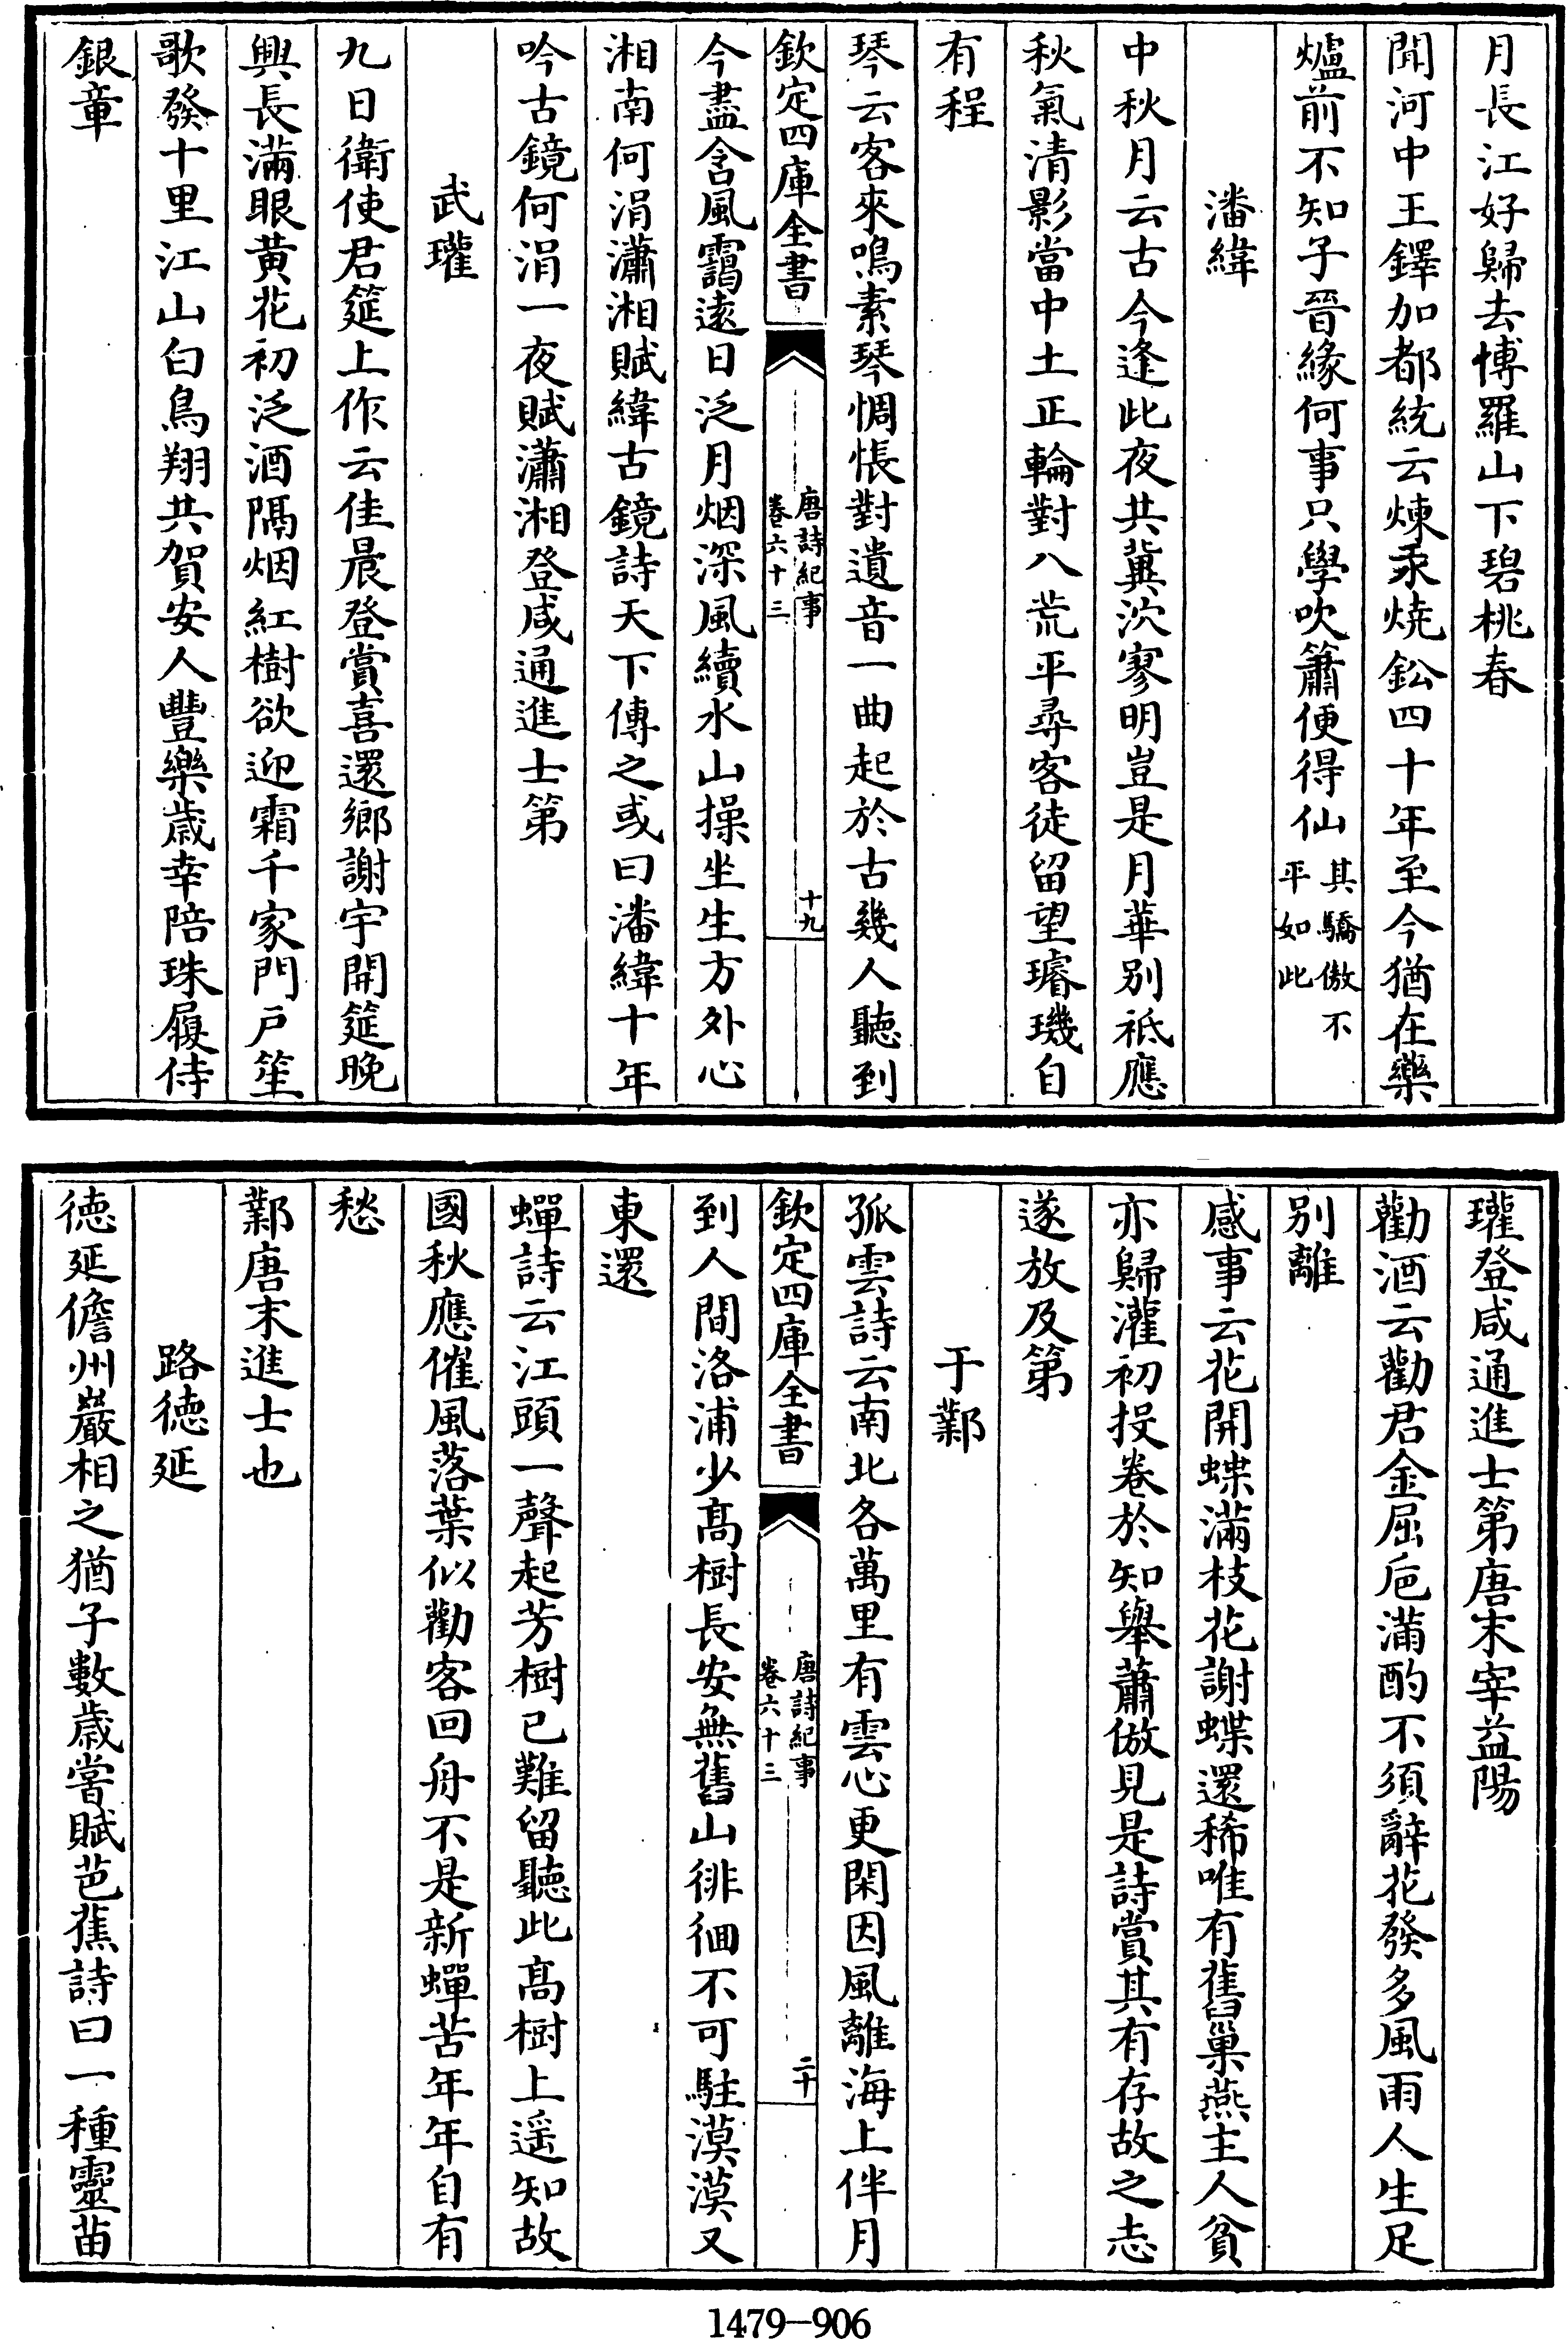 月長江好歸去博羅山下碧桃春
聞河中王鐸加都統云煉汞燒鈆四十年至今猶在藥
爐前不知子晉緣何事只學吹簫便得仙其驕傲不
平如此
潘緯
中秋月云古今逢此夜共冀泬寥明豈是月華别祗應
秋氣清影當中土正輪對八荒平尋客徒留望璿璣自
有程
琴云客來鳴素琴惆悵對遺音一曲起於古幾人聽到
欽定四庫全書
唐詩紀事
卷六十三
十九
今盡含風靄遠日泛月烟深風續水山操坐生方外心
湘南何涓瀟湘賦緯古鏡詩天下傳之或曰潘緯十年
吟古鏡何涓一夜賦瀟湘登咸通進士第
武瓘
九日衛使君筵上作云佳晨登賞喜還鄉謝宇開筵晚
興長滿眼黄花初泛酒隔烟紅樹欲迎霜千家門戸笙
歌發十里江山白鳥翔共賀安人豐樂歲幸陪珠履侍
銀章
瓘登咸通進士第唐末宰益陽
勸酒云勸君金屈巵滿酌不須辭花發多風雨人生足
别離
感事云花開蝶滿枝花謝蝶還稀唯有舊巢燕主人貧
亦歸灌初投卷於知舉蕭倣見是詩賞其有存故之志
遂放及第
于鄴
孤雲詩云南北各萬里有雲心更閑因風離海上伴月
欽定四庫全書
唐詩紀事
卷六十三
二十
到人間洛浦少高樹長安無舊山徘徊不可駐漠漠又
東還
蟬詩云江頭一聲起芳樹已難留聽此高樹上遥知故
國秋應催風落葉似勸客回舟不是新蟬苦年年自有
愁
鄴唐末進士也
路德延
德延儋州巖相之猶子數歲嘗賦芭蕉詩曰一種靈苗
1479—906